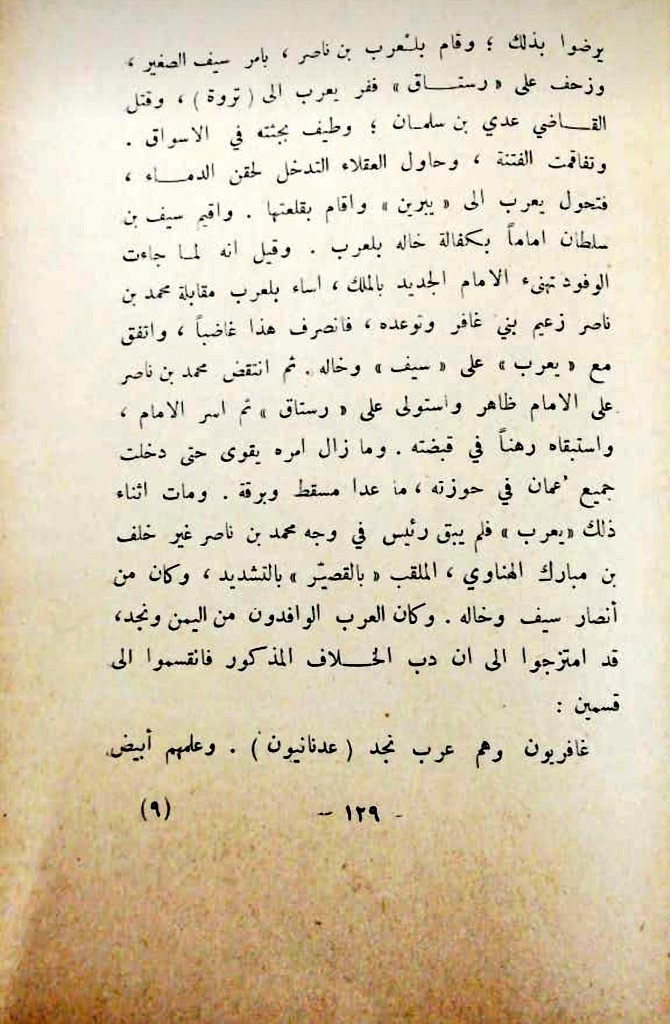 يرضوا بذلك ؛ وقام بلعرب بن ناصر ، بامر سيف الصغير ،
وزحف على « رستـــاق » ففر يعرب الى ( تروة ) ، وقتل
القـــاضي عدي بن سلمـان ؛ وطيف بجثته في الاسواق .
وتفاقمت الفتنة ، وحاول العقلاء التدخل لحقن الدمـــاء ،
فتحول يعرب الى « يبرين » واقام بقلعتها . واقيم سيف بن
سلطان اماماً بكفالة خاله بلعرب . وقيل انه لمـا جاءت
الوفود تهنىء الامام الجديد بالملك ، اساء بلعرب مقابلة محمد بن
ناصر زعيم بني غافر وتوعده ، فانصرف هذا غاضباً ، واتفق
مع « يعرب » على « سيف » وخاله . ثم انتقض محمد بن ناصر
على الامام ظاهر واستولى على « رستاق » ثم اسر الامام ،
واستبقاه رهناً في قبضته . وما زال امره يقوى حتى دخلت
جميع عُمان في حوزته ، ما عدا مسقط وبرقة . ومات اثناء
ذلك « يعرب » فلم يبق رئيس في وجه محمد بن ناصر غير خلف
بن مبارك الهناوي ، الملقب « بالقصيّر » بالتشديد ، وكان من
أنصار سيف وخاله . وكان العرب الوافدون من اليمن ونجد،
قد امتزجوا الى ان دب الخـــلاف المذكور فانقسموا الى
قسمين :
غافريون وهم عرب نجد ( عدنانيون ) . وعلمهم أبيض
- ١٢٩ - (٩)